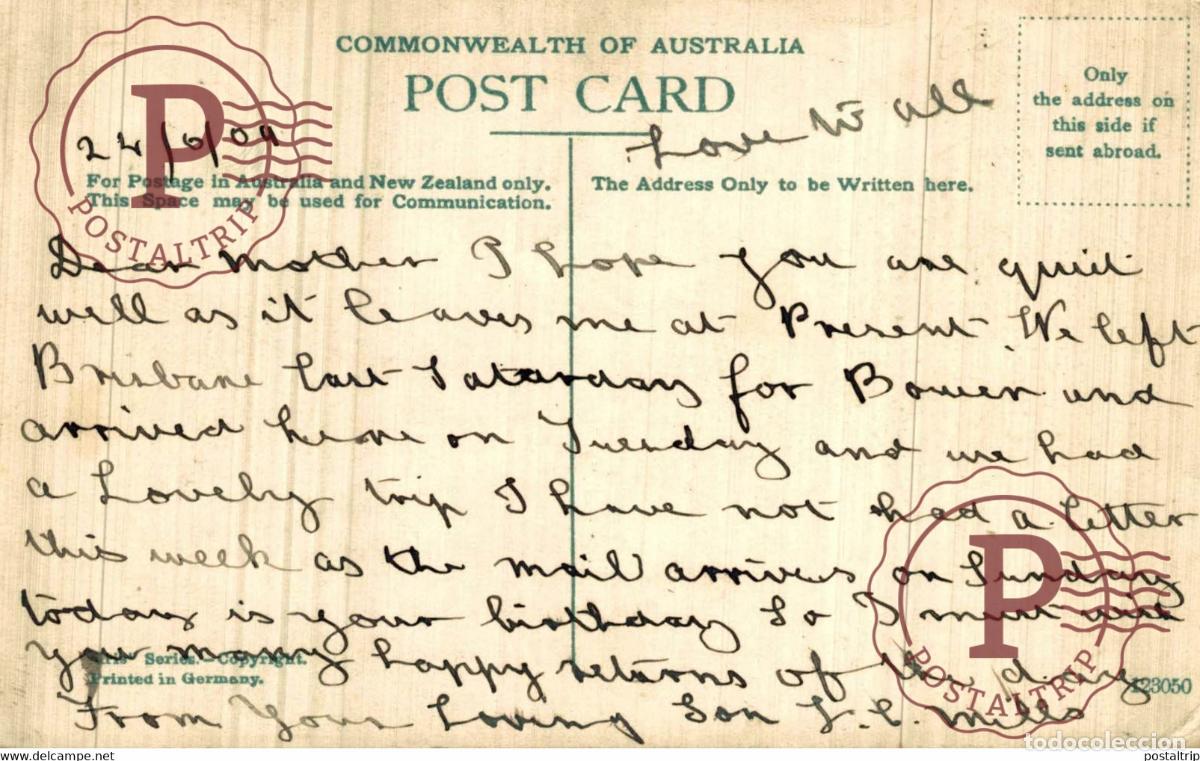 COMMONWEALTH OF AUSTRALIA
POST CARD
Only
the address on
this side if
sent abroad.
Love to all
/6/09
For Postage in Australia and New Zealand only.
This Space may be used for Communication.
The Address Only to be Written here.
P
POSTALTRIP
Dear Mother I hope you are quit
well as it leaves me at Present. We left
Brisbane last Saturday for Bowen and
arrived here on Tuesday and we had
a Lovely trip I have not had a letter
this week as the mail arrives on Sunday
today is your birthday So I must wish
you many happy returns of the day
Series. Copyright.
Printed in Germany.
123050
From Your Loving Son Mills
P
POSTALTRIP
todocoleccion
www.delcampe.net
postaltrip